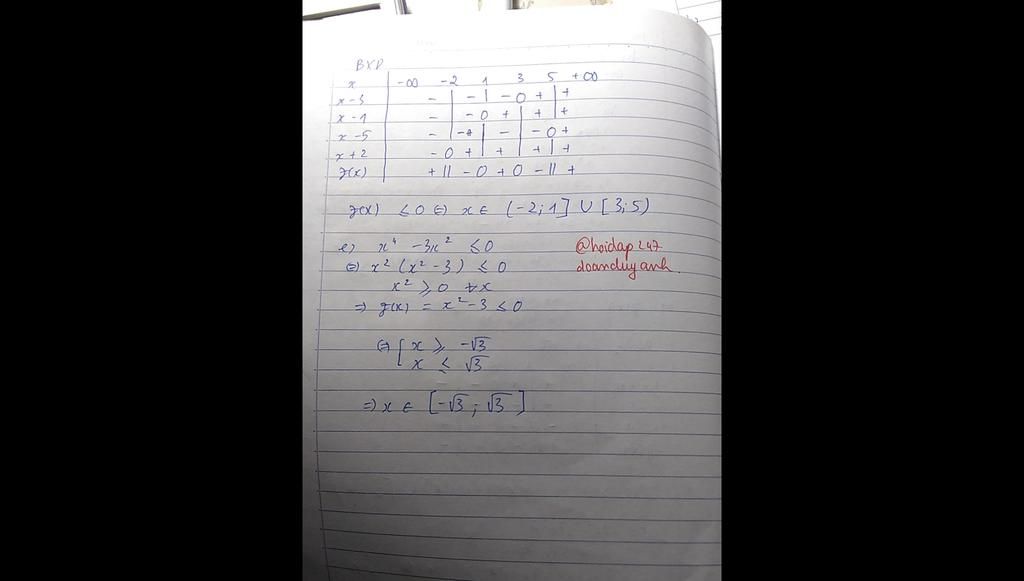 BXD
x | -∞ -2 1 3 5 +∞
x-3 | - | - | - 0 + | +
x-1 | - | - 0 + | + | +
x-5 | - | - | - | - 0 +
x+2 | - 0 + | + | + | +
f(x) | + || - 0 + 0 - || +
f(x) ≤ 0 ⇔ x ∈ (-2; 1] ∪ [3; 5)
e) x⁴ - 3x² ≤ 0
⇔ x² (x² - 3) ≤ 0
x² ≥ 0 ∀x
⇒ f(x) = x² - 3 ≤ 0
⇔ [ x ≥ -√3
x ≤ √3
⇒ x ∈ [-√3; √3]
@hoidap247
doanduyanh.